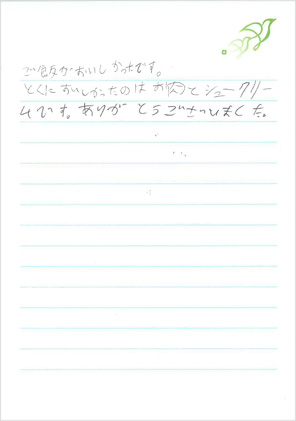 ご飯がおいしかったです。
とくにおいしかったのはお肉とシュークリー
ムです。ありがとうございました。